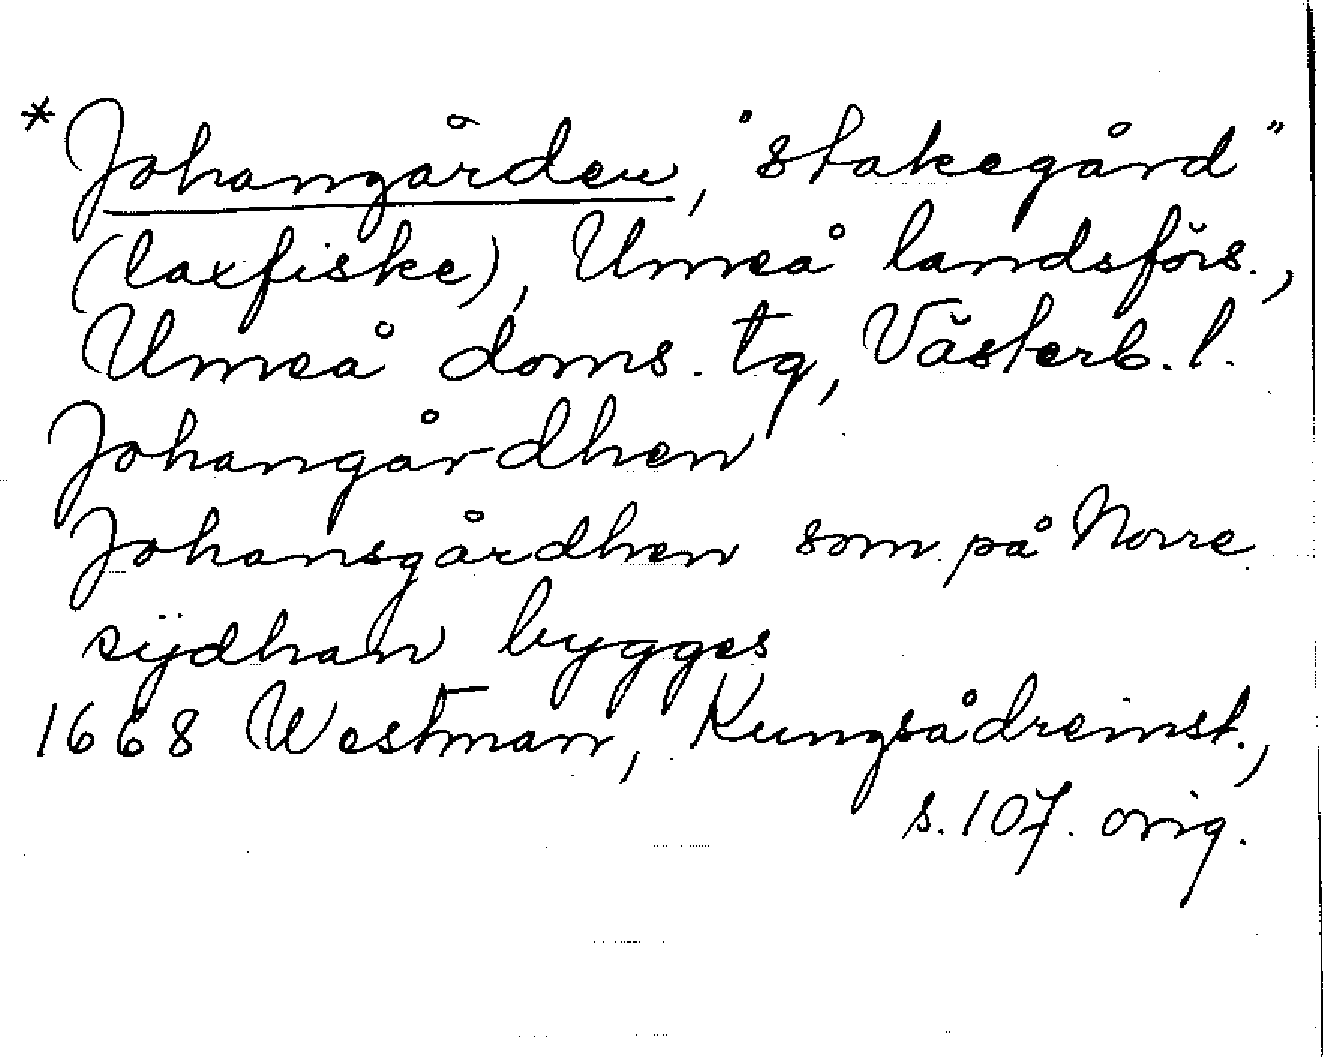 *Johangården, "stakegård"
(laxfiske), Umeå landsförs.,
Umeå doms. tg, Västerb. l.
Johangårdhen
Johansgårdhen som på Norre
sÿdhan bygges
1668 Westman, Kungsådreinst.,
s. 107. orig.